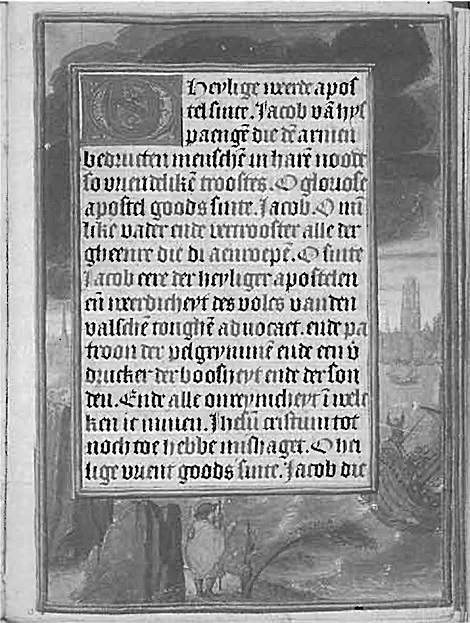 O Heylige weerde apos
tel sinte. Jacob vā hys
paengē die dē armen
bedructen menschē in harē noode
so vriendelikē troostes. O gloriose
apostel goods sinte. Jacob. O mil
like vader ende vertrooster alle der
gheenre die di aenroepē. O sinte
Jacob eere der heyliger apostelen
eñ weerdicheyt des volcs van den
valschē tonghē advocaet. ende pa
troon der pelgrymmē ende een v̄
drucker der boosheyt ende der son
den. Ende alle onreynicheyt ī welc
ken ic minen. Jhesū cristum tot
noch toe hebbe mishaget. O hei
lige vrient goods sinte. Jacob die